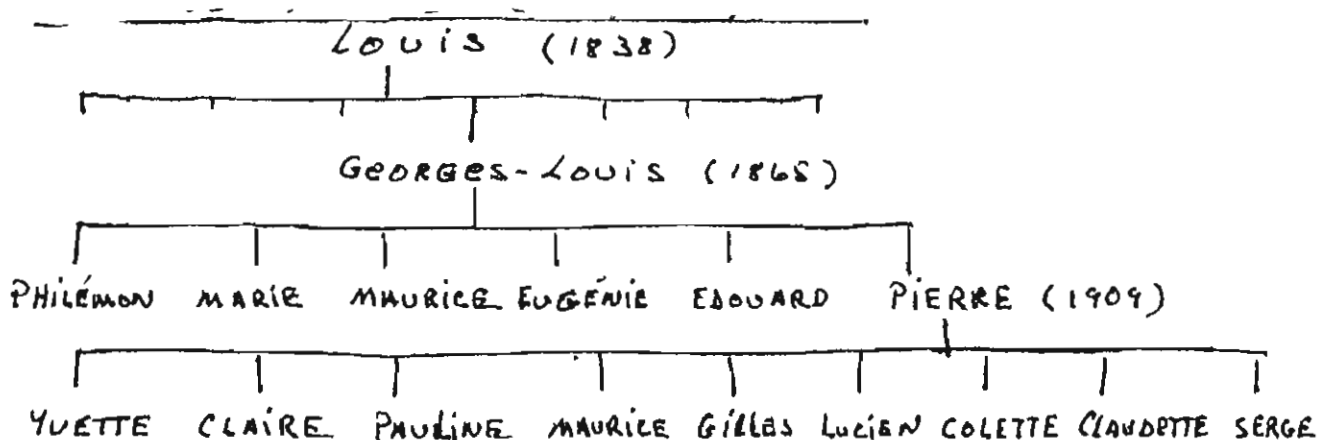 LOUIS (1838)
GEORGES-LOUIS (1865)
PHILÉMON MARIE MAURICE EUGÉNIE EDOUARD PIERRE (1909)
YVETTE CLAIRE PAULINE MAURICE GILLES LUCIEN COLETTE CLAUDETTE SERGE